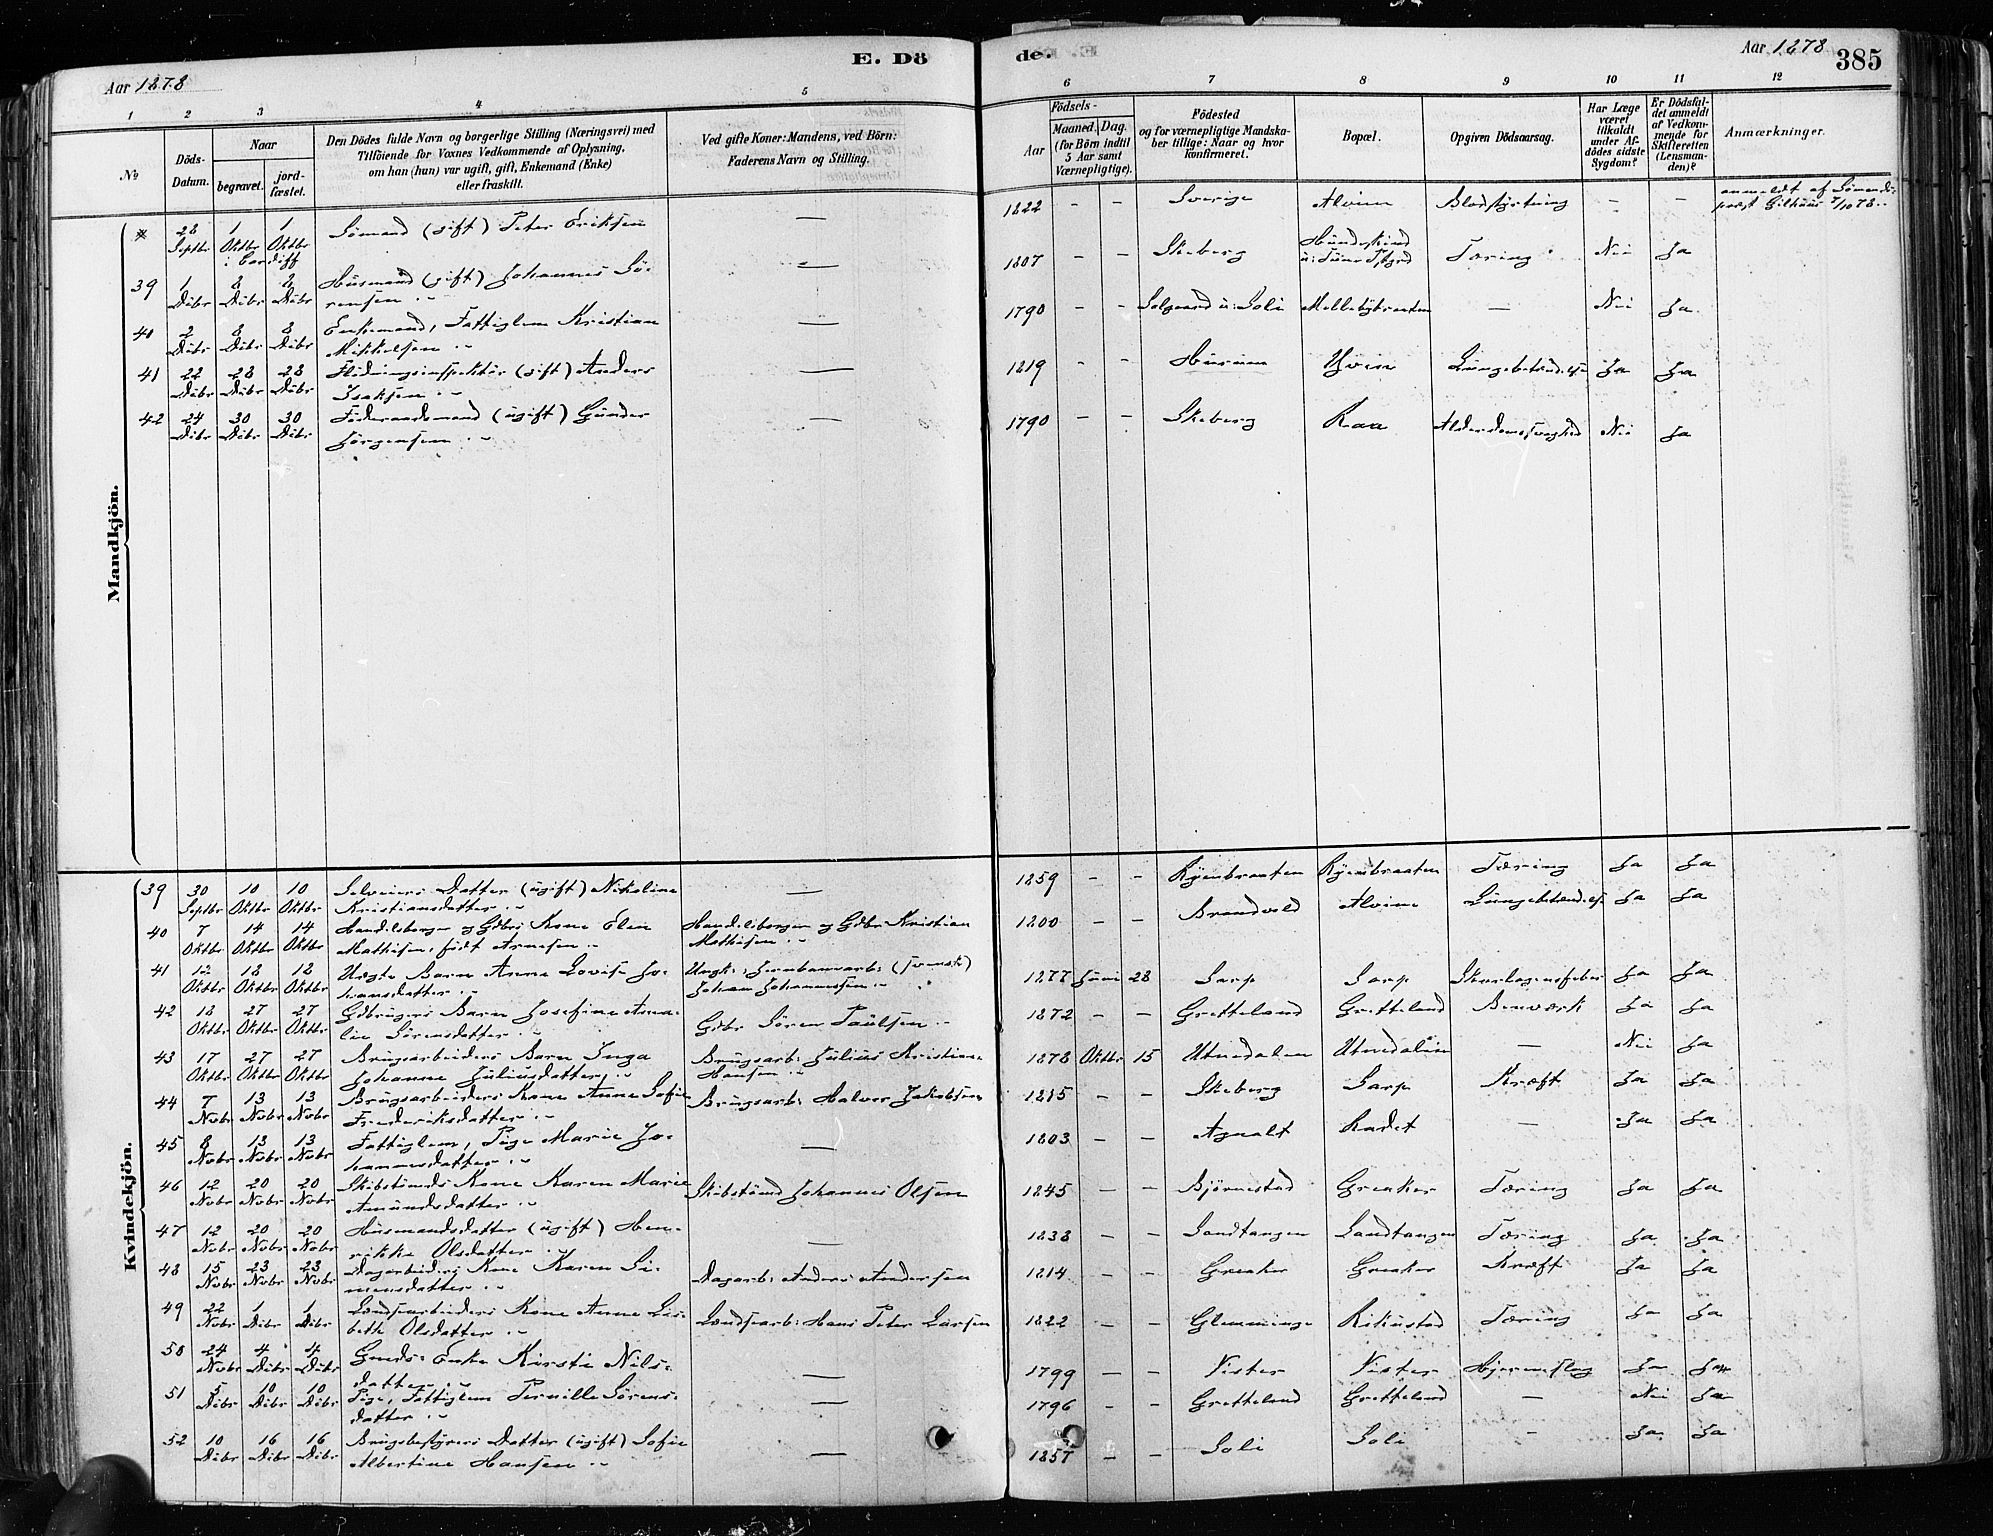 Aar 1878
E. Dö
de.
Aar 1878
385
1 2 3 4 5 6 7 8 9 10 11 12
No
Döds-Datum.
Naar
begravet.
jordfæstet.
Den Dödes fulde Navn og borgerlige Stilling (Næringsvei) med
Tilföiende for Voxnes Vedkommende af Oplysning,
om han (hun) var ugift, gift, Enkemand (Enke)
eller fraskilt.
Ved gifte Koner: Mandens, ved Börn:
Faderens Navn og Stilling.
Födsels-
Aar
Maaned. Dag.
(for Börn indtil
5 Aar samt
Værnepligtige).
Födested
og for værnepligtige Mandskaber
tillige: Naar og hvor
konfirmeret.
Bopæl.
Opgiven Dödsaarsag.
Har Læge
været
tilkaldt
under Afdödes
sidste
Sygdom?
Er Dödsfaldet
anmeldt
af Vedkommende
for
Skifteretten
(Lensmanden)?
Anmærkninger.
Mandkjön.
28 Septbr 1 Oktbr 1 Oktbr i Cardiff Sömand (gift) Peter Eriksen — 1822 - - Sverige Alvim Blodstyrtning - - anmeldt af Sömandspræst 7/10 78
39 1 Dcbr 8 Dcbr 8 Dcbr Husmand (gift) Johannes Sörensen — 1807 - - Skeberg Hundskind u: Tune Tæring Nei Ja
40 2 Dcbr 8 Dcbr 8 Dcbr Enkemand, Fattiglem Kristian Mikkelsen — 1790 - - Solgaard u: Soli Mellebybraaten — Nei Ja
41 22 Dcbr 28 Dcbr 28 Dcbr Flödningsinspektör (gift) Anders Isaksen — 1819 - - Husum Hvin Lungebetændelse Ja Ja
42 24 Dcbr 30 Dcbr 30 Dcbr Föderaadsmand (ugift) Gunder Jörgensen — 1790 - - Skeberg Raa Alderdomssvaghed Nei Ja
Kvindekjön.
39 30 Septbr 10 Oktbr 10 Oktbr Selveiers Datter (ugift) Nikoline Kristiansdatter — 1859 - - Ryenbraaten Ryenbraaten Tæring Ja Ja
40 7 Oktbr 14 Oktbr 14 Oktbr Handelsborger og Gdbrs Kone Elen Mathisen, födt Arnesen Handelsborger og Gdbr Kristian Mathisen 1800 - - Brandvold Alvim Lungebetændelse Ja Ja
41 12 Oktbr 18 Oktbr 18 Oktbr Uægte Barn Anne Lovise Johansdatter Ungk: Jernbanearb: (svensk) Johan Johannessen 1877 Juni 28 Sarp Sarp Skarlagensfeber Ja Ja
42 18 Oktbr 27 Oktbr 27 Oktbr Gdbrugers Barn Josefine Amalie Sörensdatter Gdbr Sören Paulsen 1872 - - Gretteland Gretteland Benværk Ja Ja
43 17 Oktbr 27 Oktbr 27 Oktbr Brugsarbeiders Barn Inga Johanne Juliusdatter Brugsarb: Julius Kristian Hansen 1878 Oktbr 15 Utnedalen Utnedalen — Nei Ja
44 7 Nvbr 13 Nvbr 13 Nvbr Brugsarbeiders Kone Anne Sofie Frederiksdatter Brugsarb: Halvor Jakobsen 1815 - - Skeberg Sarp Kræft Ja Ja
45 8 Nvbr 13 Nvbr 13 Nvbr Fattiglem, Pige Marie Johannesdatter — 1803 - - Agnalt Kadet — Ja Ja
46 12 Nvbr 20 Nvbr 20 Nvbr Skibstömds Kone Karen Marie Amundsdatter Skibstömd Johannes Olsen 1845 - - Björnestad Greaker Tæring Ja Ja
47 12 Nvbr 20 Nvbr 20 Nvbr Husmandsdatter (ugift) Henrikke Olsdatter — 1838 - - Sandtangen Sandtangen Tæring Ja Ja
48 15 Nvbr 23 Nvbr 23 Nvbr Dagarbeiders Kone Karen Simensdatter Dagarb: Anders Andersen 1814 - - Greaker Greaker Kræft Ja Ja
49 22 Nvbr 1 Dcbr 1 Dcbr Lændsarbeiders Kone Anne Lisbeth Olsdatter Lændsarb: Hans Peter Larsen 1822 - - Glemminge Rikustad Tæring Ja Ja
50 24 Nvbr 4 Dcbr 4 Dcbr Gmds: Enke Kirsti Nilsdatter — 1799 - - Vister Vister Hjerneslag Ja Ja
51 5 Dcbr 10 Dcbr 10 Dcbr Pige, Fattiglem Pernille Sörensdatter — 1796 - - Gretteland Gretteland — Nei Ja
52 10 Dcbr 16 Dcbr 16 Dcbr Brugsbestyrers Datter (ugift) Sofie Albertine Hansen — 1857 - - Soli Soli - Ja Ja